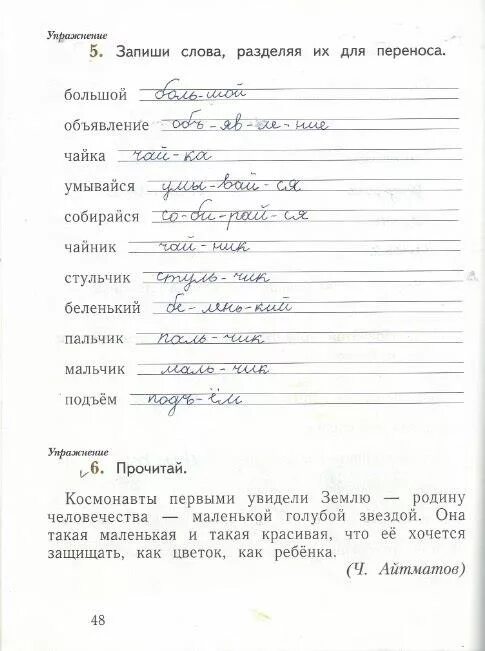 Упражнение
5. Запиши слова, разделяя их для переноса.
большой боль-шой
объявление объ-яв-ле-ние
чайка чай-ка
умывайся умы-вай-ся
собирайся со-би-рай-ся
чайник чай-ник
стульчик стуль-чик
беленький бе-лень-кий
пальчик паль-чик
мальчик маль-чик
подъём подъ-ём
Упражнение
6. Прочитай.
Космонавты первыми увидели Землю — родину
человечества — маленькой голубой звездой. Она
такая маленькая и такая красивая, что её хочется
защищать, как цветок, как ребёнка.
(Ч. Айтматов)
48